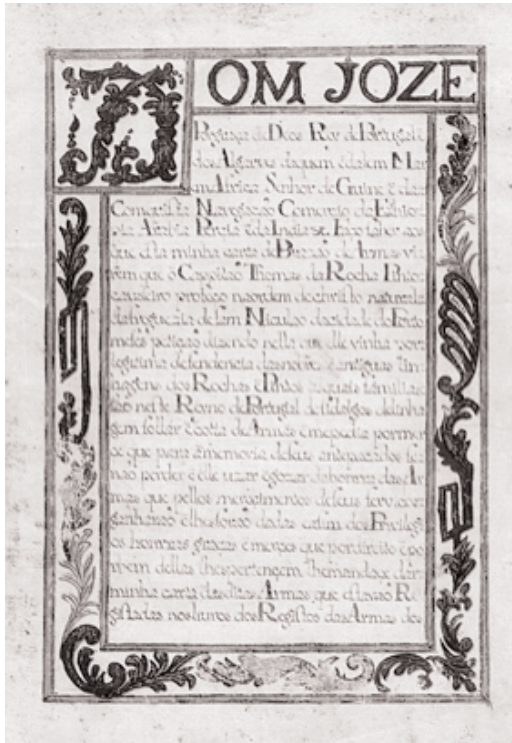 DOM JOZE
Por graça de Deos Rey de Portugal e
dos Algarves daquem e dalem Mar
em Africa Senhor de Guine e da
Comquista Navegação Comercio de Ethio
pia Arabia Persia e da India &c. Faço saber aos
que esta minha carta de Brazão de Armas vi
rem que o Cappitão Thomas da Rocha Pinto
cavaleiro professo na ordem de christo natural
da freguezia de sam Nicolao da cidade do Porto
me fes petição dizendo nella que elle vinha por
legitima descendencia das nobres e antiguas lin
hagens dos Rochas e Pintos as quais familias
são neste Reyno de Portugal de fidalgos de linha
gem sollar e cotta de Armas e me pedia por mer
ce que para a memoria de seus antepassados se
não perder e elle uzar e gozar da honrra das Ar
mas que pellos merecimentos de seus serviços
ganharão e lhes forão dadas e assim dos Privilegi
os honrras graças e merces que por direito e por
bem dellas lhe pertençem lhe mandaçe dar
minha carta das ditas Armas que estavão Re
gistadas nos livros dos Registos das Armas dos